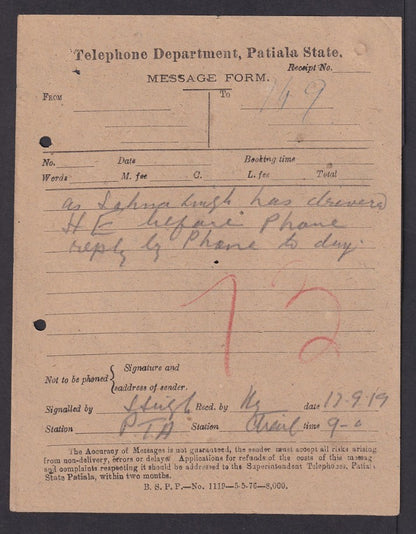 Telephone Department, Patiala State.
Receipt No.
MESSAGE FORM.
FROM To
149
No. Date Booking time
Words M. fee C. L. fee Total
as has
H E before Phone
reply by Phone to day.
72
Signature and
Not to be phoned
address of sender.
Signalled by Singh Recd. by date 17-9-19
Station PTA Station time 9-0
The Accuracy of Messages is not guaranteed, the sender must accept all risks arising
from non-delivery, errors or delays. Applications for refunds of the costs of this messag
and complaints respecting it should be addressed to the Superintendent Telephones, Patia
State Patiala, within two months.
B. S. P. P.—No. 1119—5-5-76—8,000.